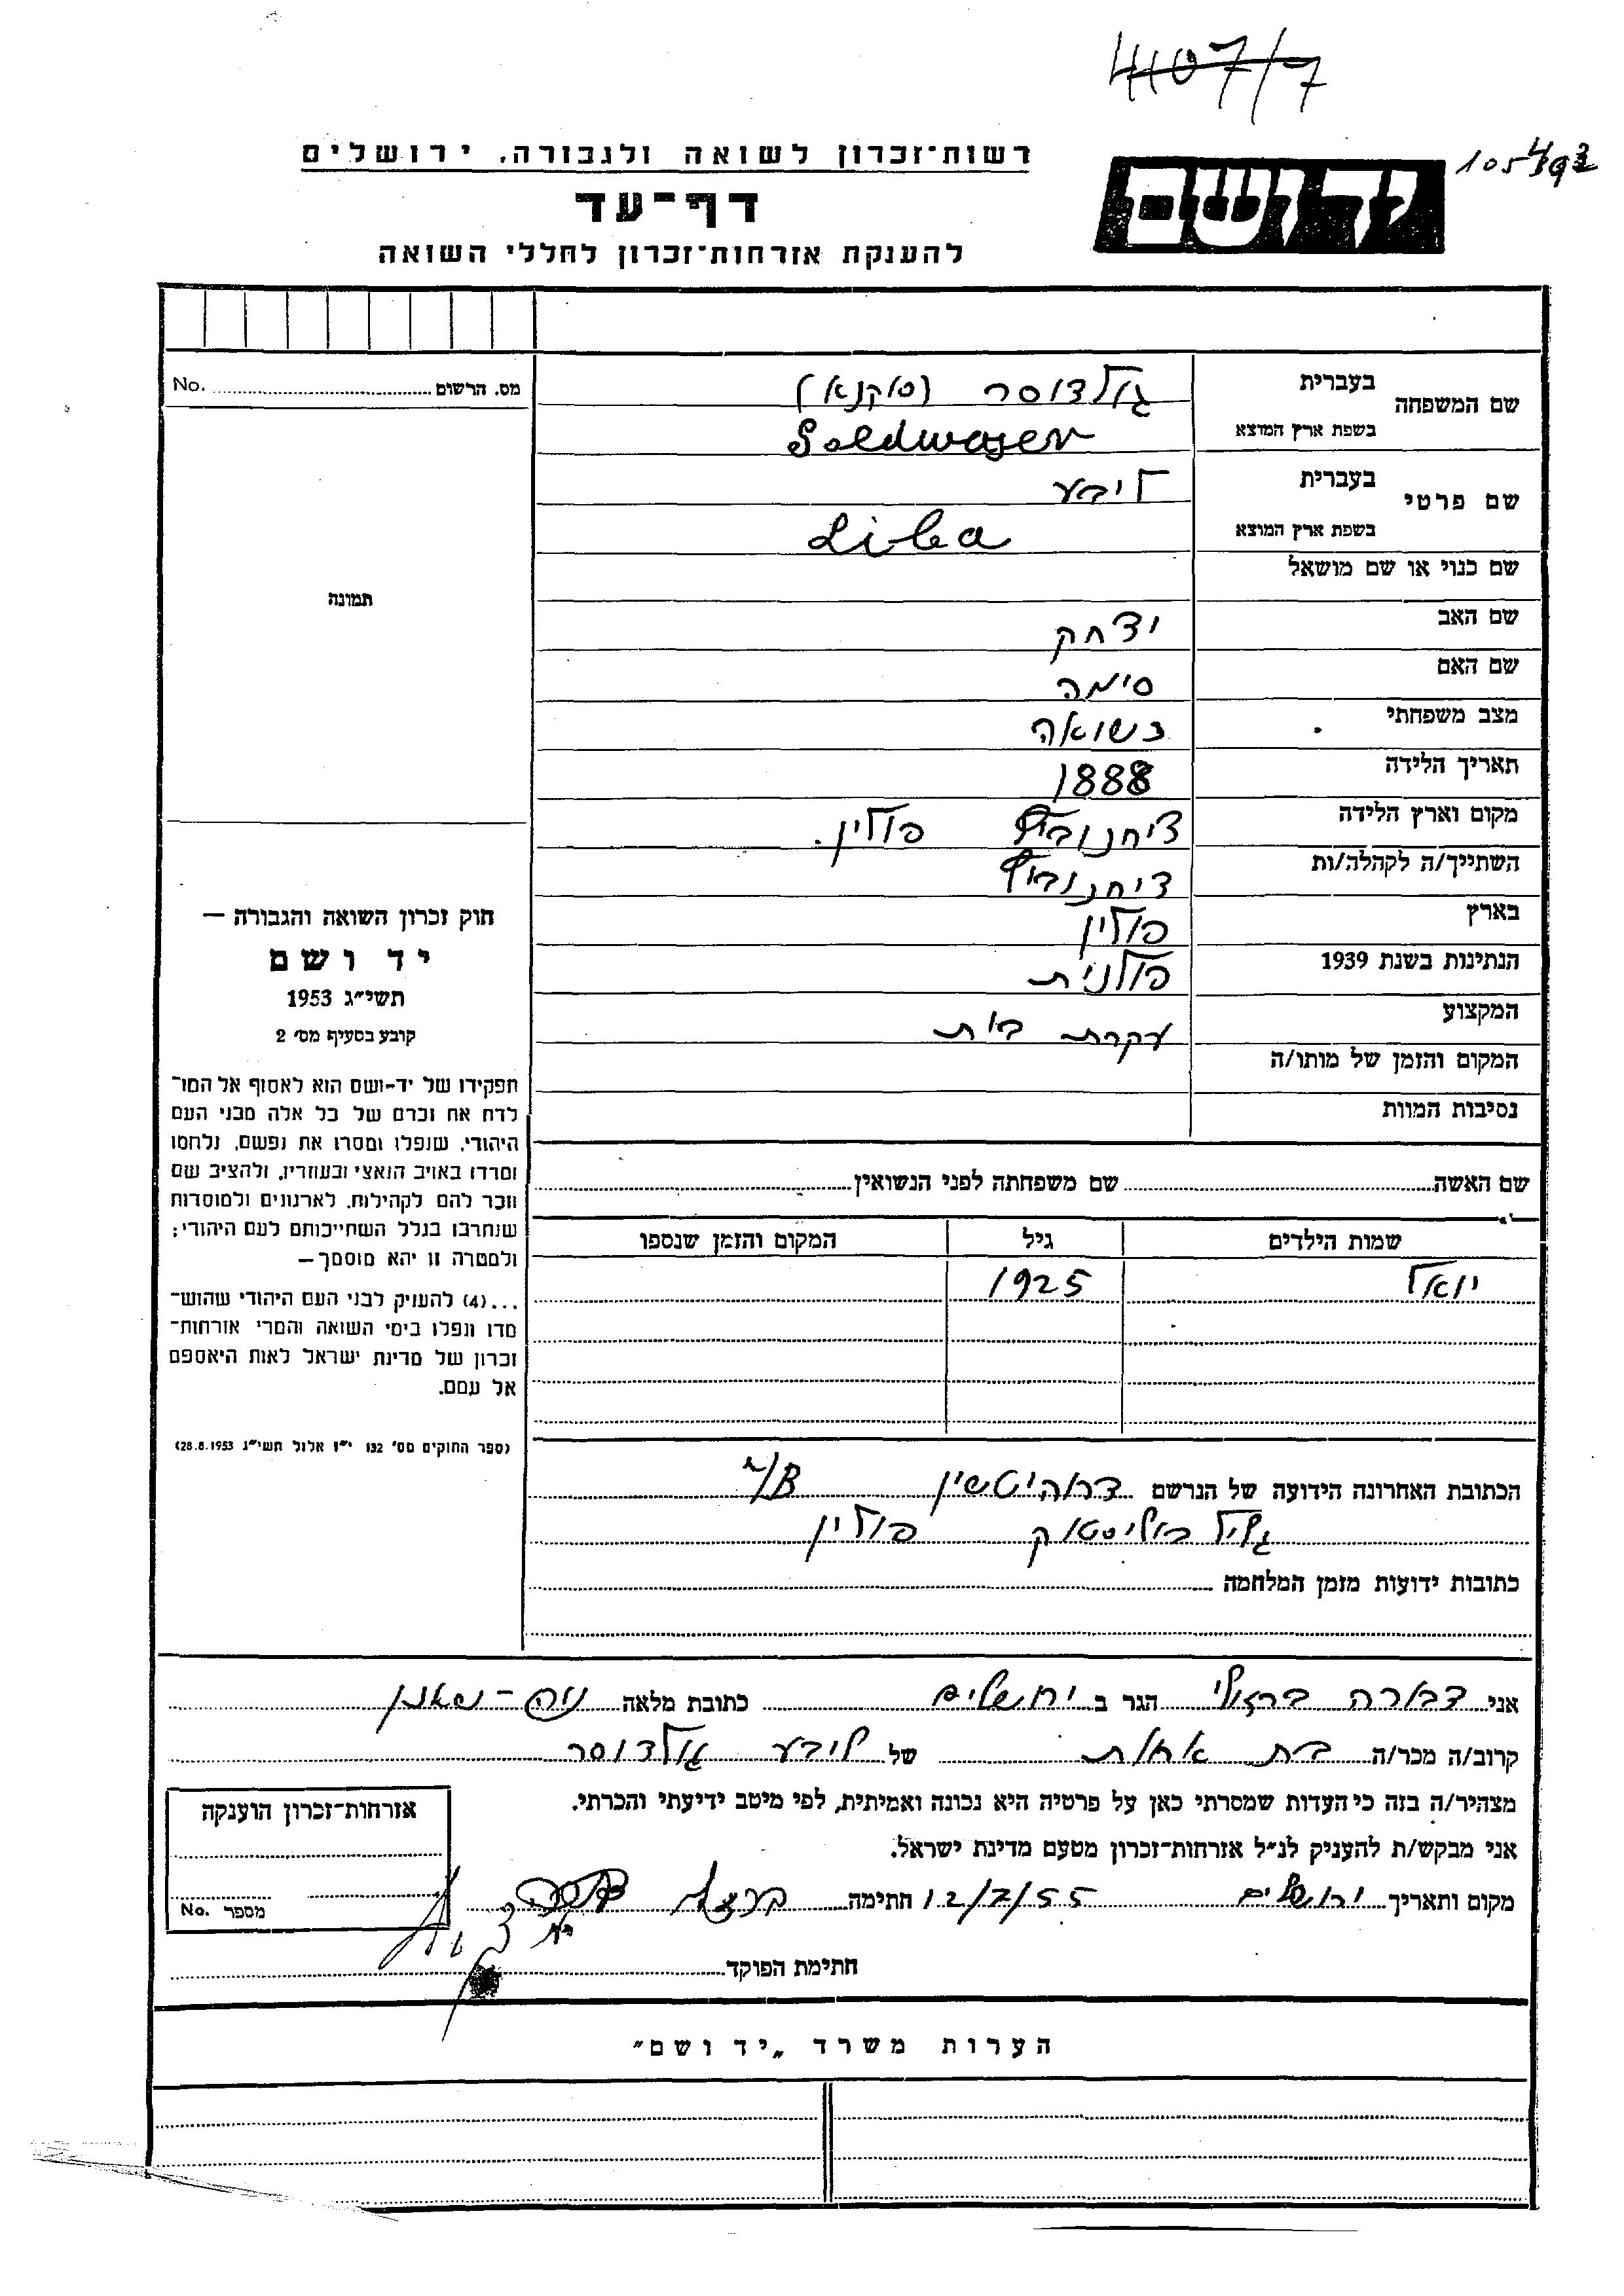 4107/7
רשות־זכרון לשואה ולגבורה, ירושלים
יד ושם
דף־עד
להענקת אזרחות־זכרון לחללי השואה
מס. הרשום No.
שם המשפחה
בעברית גולדוסר (סוקנא)
בשפת ארץ המוצא Goldwaser
שם פרטי
בעברית ליבע
בשפת ארץ המוצא Liba
שם כנוי או שם מושאל
שם האב יצחק
שם האם סימה
מצב משפחתי נשואה
תאריך הלידה 1888
מקום וארץ הלידה ציחנוביץ פולין.
השתייך/ה לקהלה/ות ציחנוביץ
בארץ פולין
הנתינות בשנת 1939 פולנית
המקצוע עקרת בית
המקום והזמן של מותו/ה
נסיבות המוות
תמונה
חוק זכרון השואה והגבורה —
יד ושם
תשי״ג 1953
קובע בסעיף מס׳ 2
תפקידו של יד-ושם הוא לאסוף אל המו־
לדת את זכרם של כל אלה מבני העם
היהודי, שנפלו ומסרו את נפשם, נלחמו
ומרדו באויב הנאצי ובעוזריו, ולהציב שם
וזכר להם לקהילות, לארגונים ולמוסדות
שנחרבו בגלל השתייכותם לעם היהודי;
ולמטרה זו יהא מוסמך—
...(4) להעניק לבני העם היהודי שהוש־
מדו ונפלו בימי השואה והמרי אזרחות־
זכרון של מדינת ישראל לאות היאספם
אל עמם.
(ספר החוקים מס׳ 132 י״ז אלול תשי״ג 28.8.1953)
שם האשה שם משפחתה לפני הנשואין
שמות הילדים גיל המקום והזמן שנספו
יואל 1925
הכתובת האחרונה הידועה של הנרשם דרוהיטשין
גליל ביאליסטוק פולין
כתובות ידועות מזמן המלחמה
אני דבורה ברזילי הגר ב ירושלים כתובת מלאה נוה-שאנן
קרוב/ה מכר/ה בת אחות של ליבע גולדוסר
מצהיר/ה בזה כי העדות שמסרתי כאן על פרטיה היא נכונה ואמיתית, לפי מיטב ידיעתי והכרתי.
אני מבקש/ת להעניק לנ״ל אזרחות־זכרון מטעם מדינת ישראל.
מקום ותאריך ירושלים 12/7/55 חתימה
חתימת הפוקד
אזרחות־זכרון הוענקה
מספר No.
הערות משרד „יד ושם״